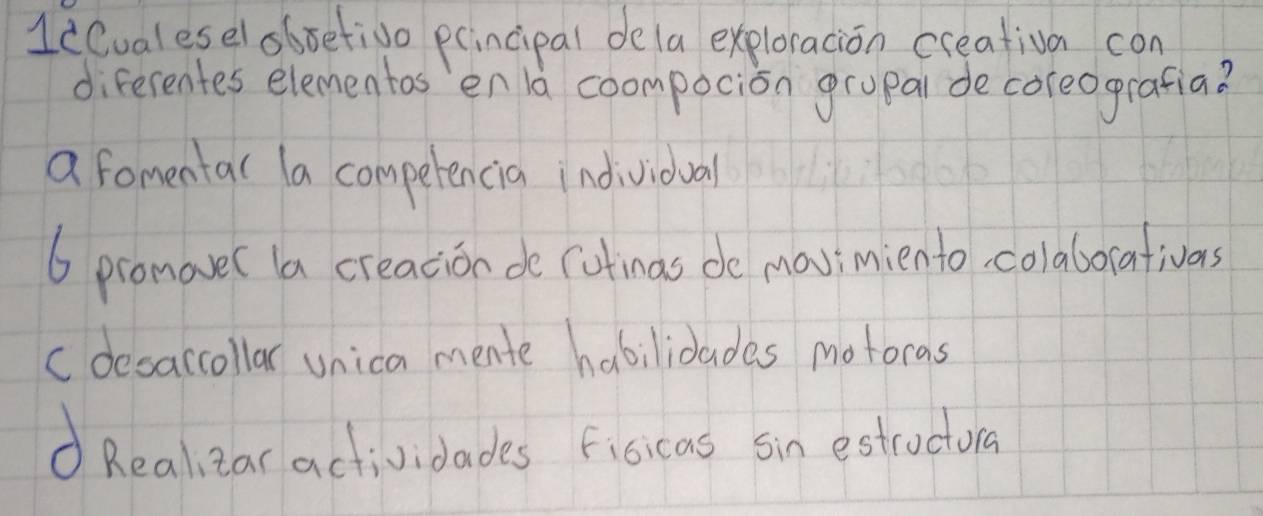 1¿Cual es el objetivo principal de la exploración creativa con
diferentes elementos en la coompoción grupal de coreografia?
a fomentar la competencia individual
b promover la creación de rutinas de movimiento colaborativas
c desarrollar unica mente habilidades motoras
d Realizar actividades fisicas sin estructura